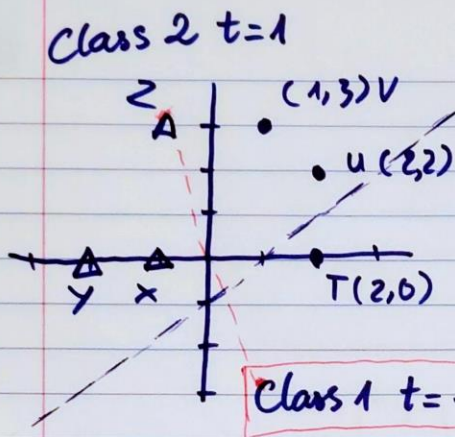 Class 2 t=1
Z (1,3) V
U (2,2)
Y X T(2,0)
Class 1 t=-